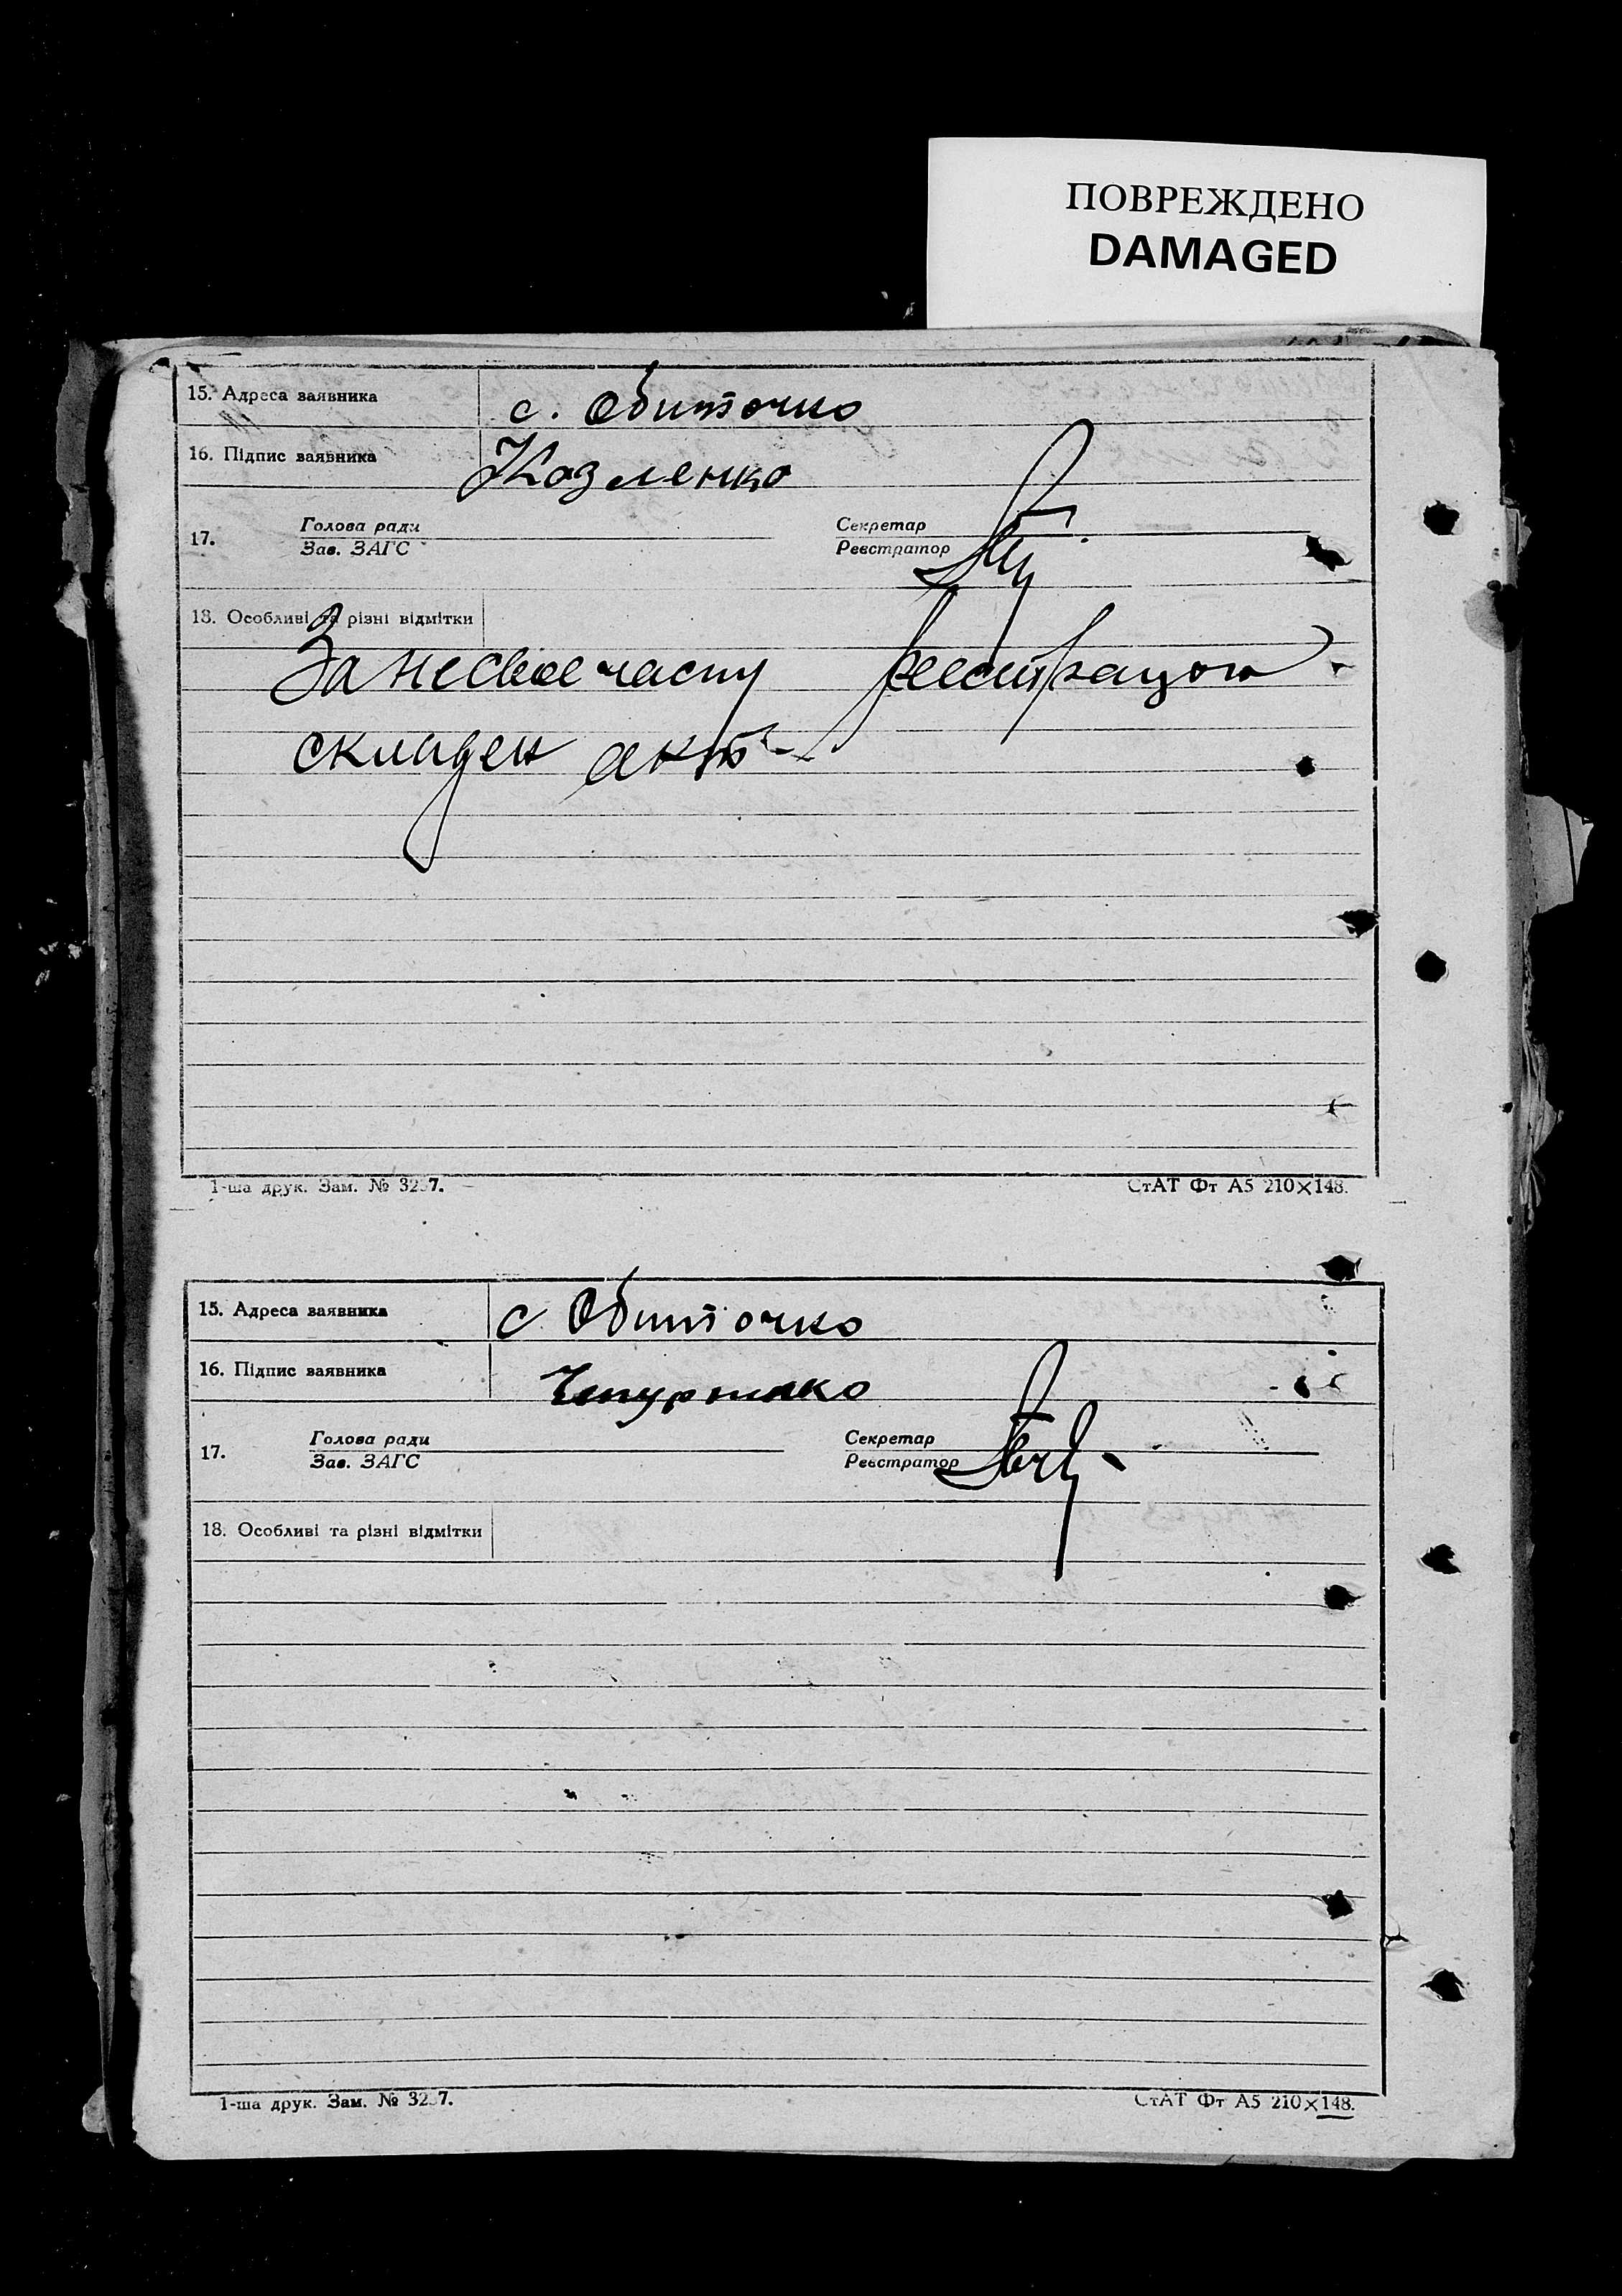 ПОВРЕЖДЕНО
DAMAGED
15. Адреса заявника с. Обиточко
16. Підпис заявника Козленко
17. Голова ради Секретар
Зав. ЗАГС Реєстратор
18. Особливі та різні відмітки
За несвоечасну реєстрацою
складен акт
1-ша друк. Зам. № 3237. СтАТ Фт А5 210×148.
15. Адреса заявника с Обиточко
16. Підпис заявника
17. Голова ради Секретар
Зав. ЗАГС Реєстратор
18. Особливі та різні відмітки
1-ша друк. Зам. № 3237. СтАТ Фт А5 210×148.